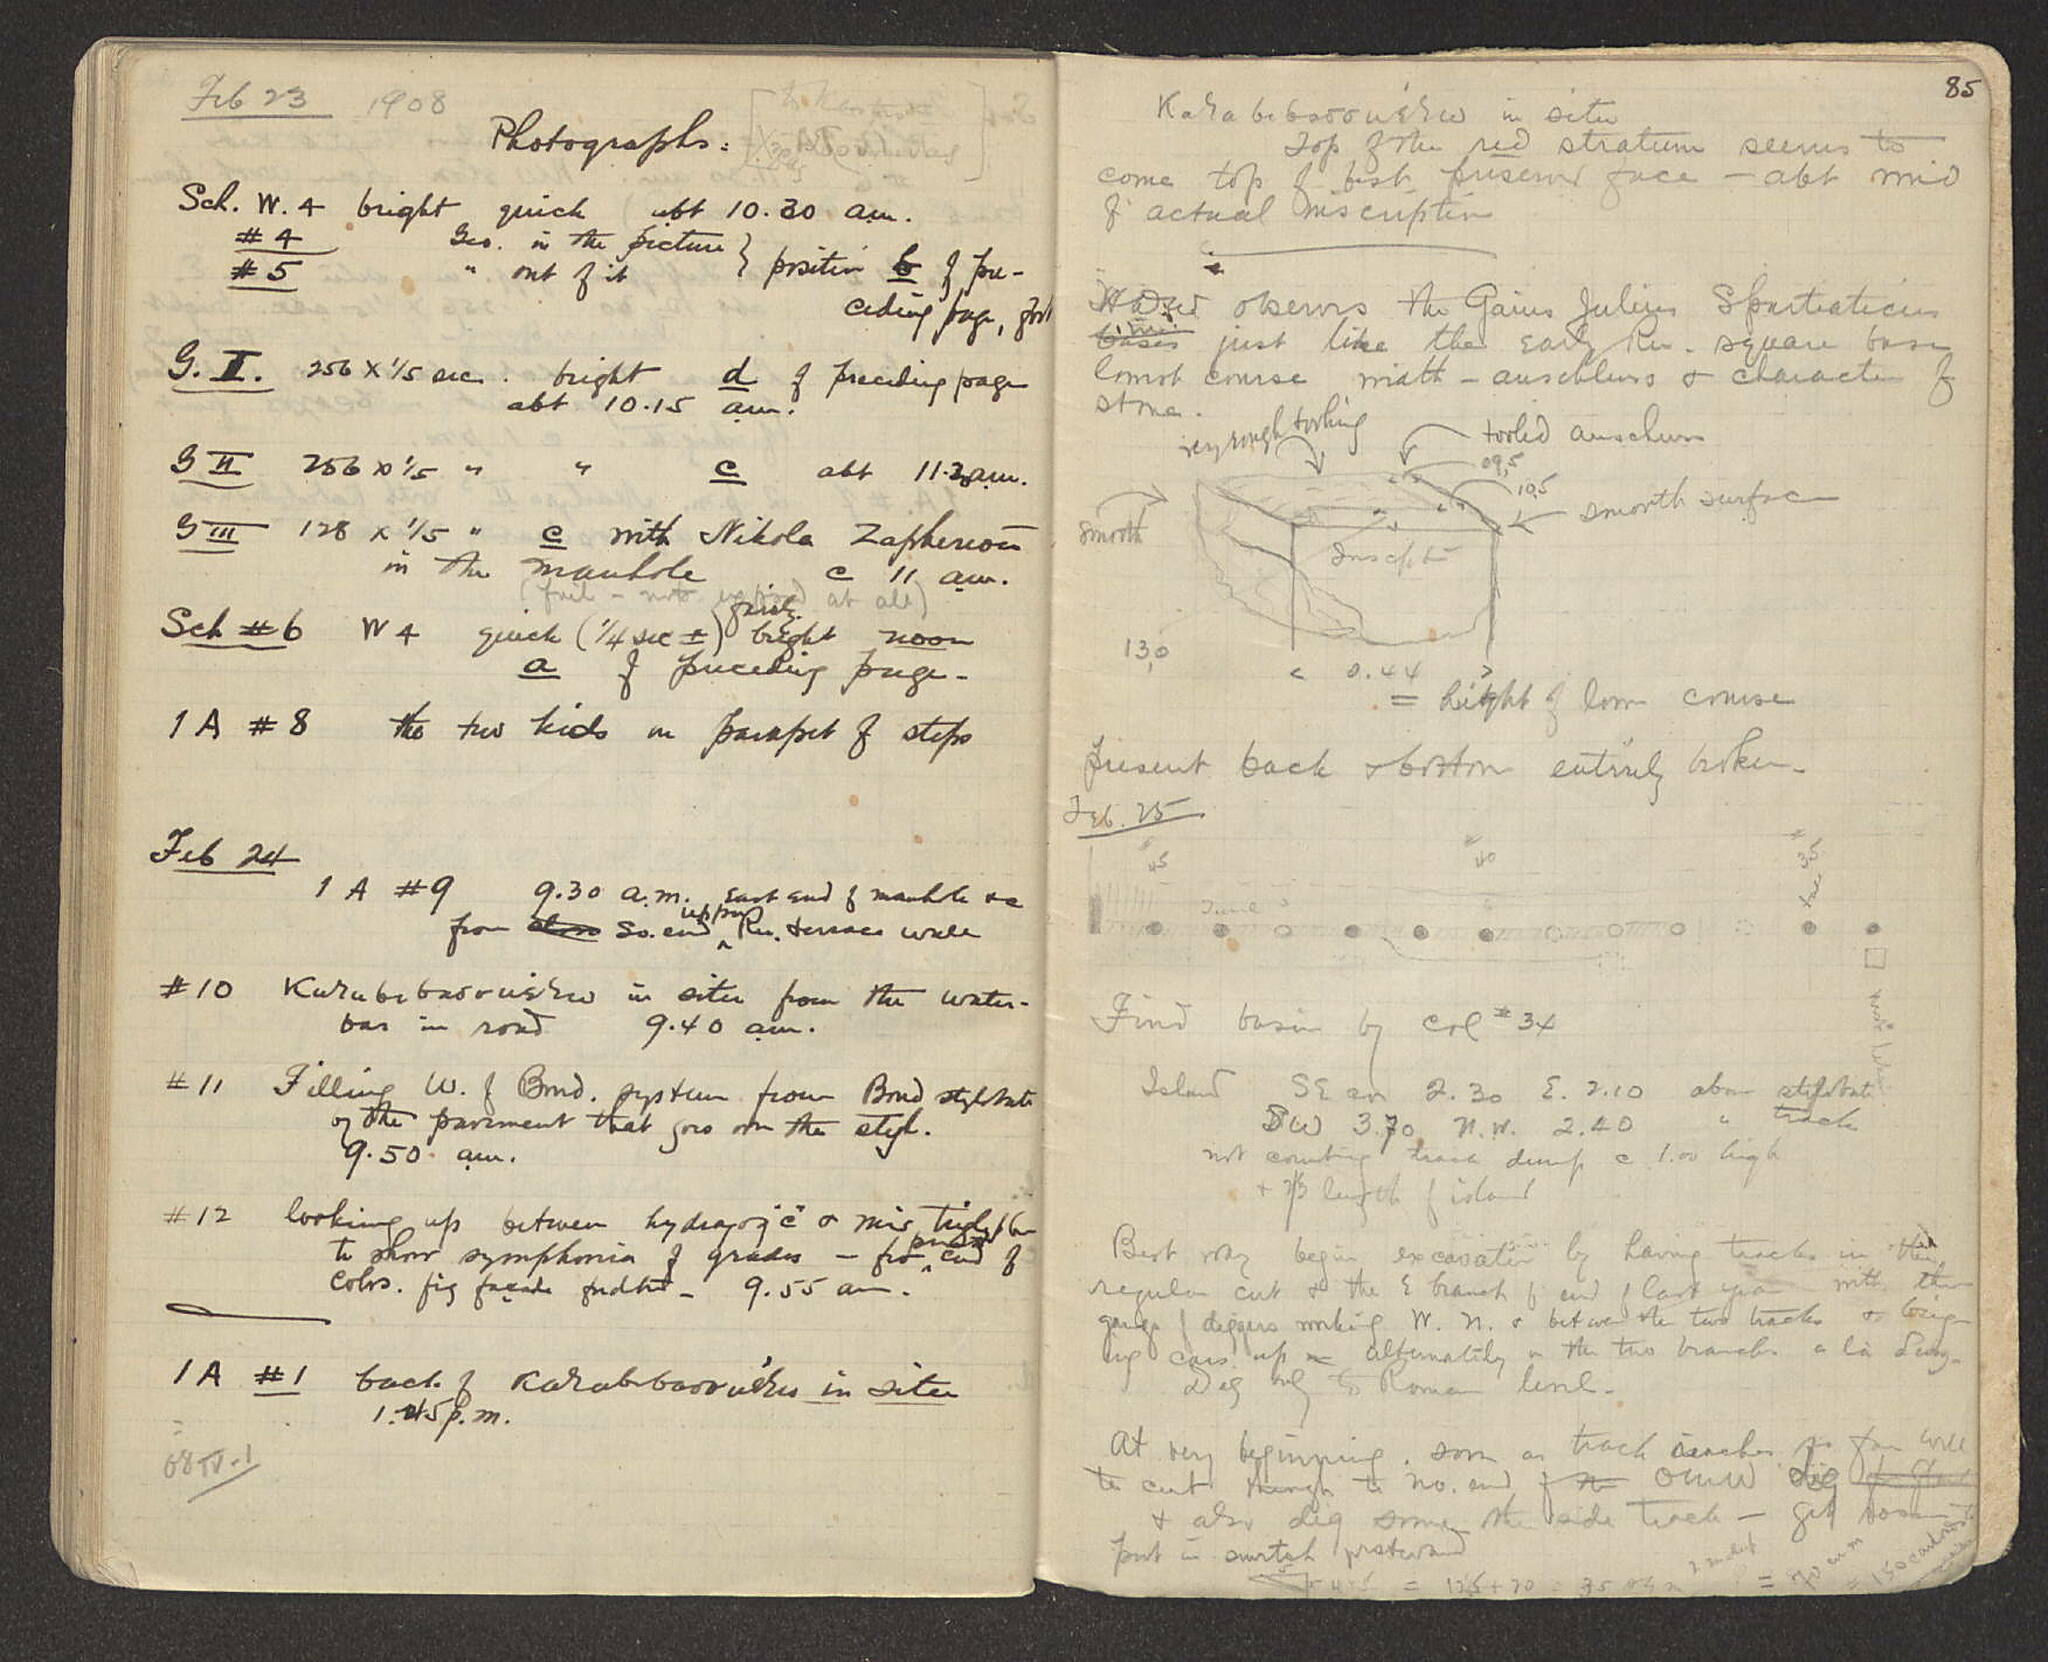 Feb 23 1908
Photographs:
Sch. W. 4 bright quick abt 10.30 a.m.
#4 Geo. in the picture } position b of pre-
#5 " out of it
ceding page,
G. II. 256 X 1/5 sec. bright d of preceding page
abt 10.15 a.m.
G II 256 X 1/5 " " c abt 11.30 a.m.
G III 128 x 1/5 " c with Nikola
in the manhole c 11 a.m.
(fail - not exposed at all)
fairly
Sch #6 W 4 quick (1/4 sec ±) bright noon
a of preceding page -
1 A #8 the two kids on parapet of steps
Feb 24
1 A #9 9.30 a.m. East end of manhole &c
from So. end upper Rn. terrace wall
#10 in situ from the water-
bar in road 9.40 a.m.
#11 Filling W. of Bond. system from Bond stylobate
of the pavement that goes over the styl.
9.50 a.m.
#12 looking up between hydragog "c" &
to show symphonia of grades - end of
Colos. fig façade 9.55 am.
1 A #1 back of in situ
1.45 p.m.
08 IV. 1
85
in situ
Top of the red stratum seems to
come top of best preserved face - abt mid
of actual inscription
observes the Gaius Julius Spartiaticus
just like the Early Rn. square base
lowest course width - anschluss & character of
stone.
very rough tooling
tooled anschluss
09,5
10,5
smooth surface
smooth
Inscpt
13,0
< 0.44 >
= height of lower course
Present back & bottom entirely broken -
Feb. 25
# 45
# 40
# 35
Find basin by col # 34
Island SE cor 2.30 E. 2.10 above stylobate
SW 3.70 N.W. 2.40 " track
not counting track dump c 1.00 high
+ 2/3 length of island
Best way begin excavation by having tracks in
regular cut & the E branch of end of last year with
gangs of diggers working W. N. & between the two tracks & bring-
ing cars up alternately on the two branches a la
Dig only to Roman level -
At very beginning, soon as track reaches
to cut through to no. end dig
& also dig some the side track - get
put in switch